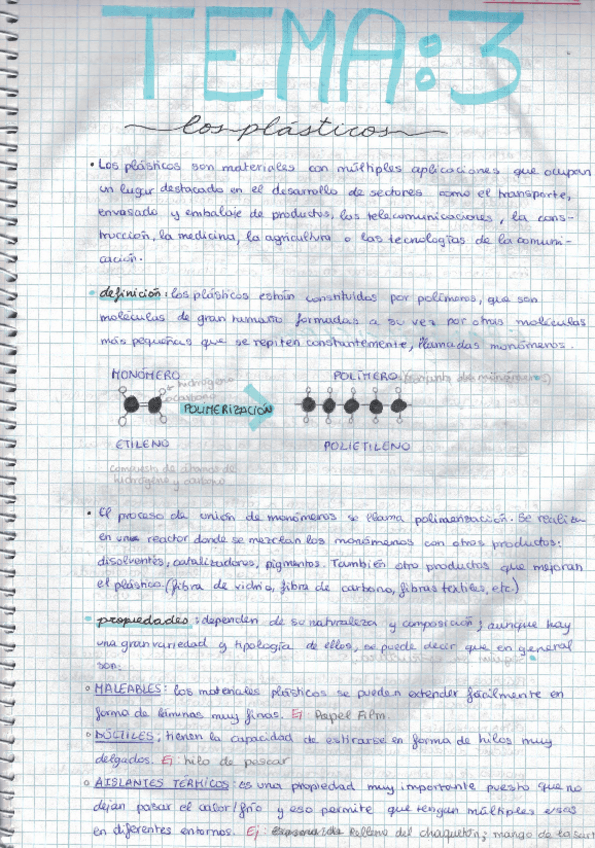 TEMA:3
los plásticos
• Los plásticos son materiales con múltiples aplicaciones que ocupan
un lugar destacado en el desarrollo de sectores como el transporte,
envasado y embalaje de productos, las telecomunicaciones, la cons-
trucción, la medicina, la agricultura o las tecnologías de la comuni-
cación.
• definición: los plásticos están constituidos por polímeros, que son
moléculas de gran tamaño formadas a su vez por otras moléculas
más pequeñas que se repiten constantemente, llamadas monómeros.
MONÓMERO
hidrógeno
carbono
POLIMERIZACIÓN
POLÍMERO (conjunto de monómeros)
ETILENO
POLIETILENO
átomos de
hidrógeno y carbono
• El proceso de unión de monómeros se llama polimerización. Se realiza
en un reactor donde se mezclan los monómeros con otros productos:
disolventes, catalizadores, pigmentos. También otro productos que mejoran
el plástico (fibra de vidrio, fibra de carbono, fibras textiles, etc.)
• propiedades: dependen de su naturaleza y composición; aunque hay
una gran variedad y tipología de ellos, se puede decir que en general
son:
◦ MALEABLES: los materiales plásticos se pueden extender fácilmente en
forma de láminas muy finas. Ej: Papel Film.
◦ DÚCTILES: tienen la capacidad de estirarse en forma de hilos muy
delgados. Ej: hilo de pescar
◦ AISLANTES TÉRMICOS: es una propiedad muy importante puesto que no
dejan pasar el calor/frío y eso permite que tengan múltiples usos
en diferentes entornos. Ej: relleno del chaquetón; mango de la sart